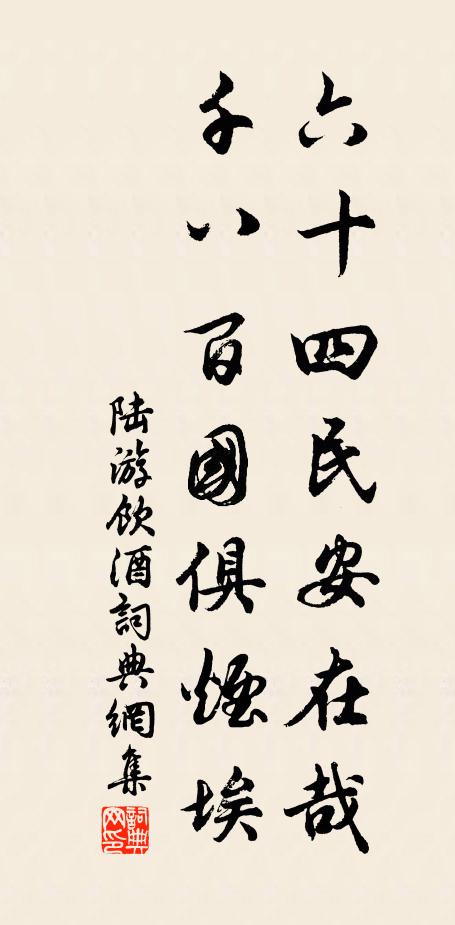 六十四民安在哉
千八百國俱煙埃
陆游飲酒詞典網集
詞典网印